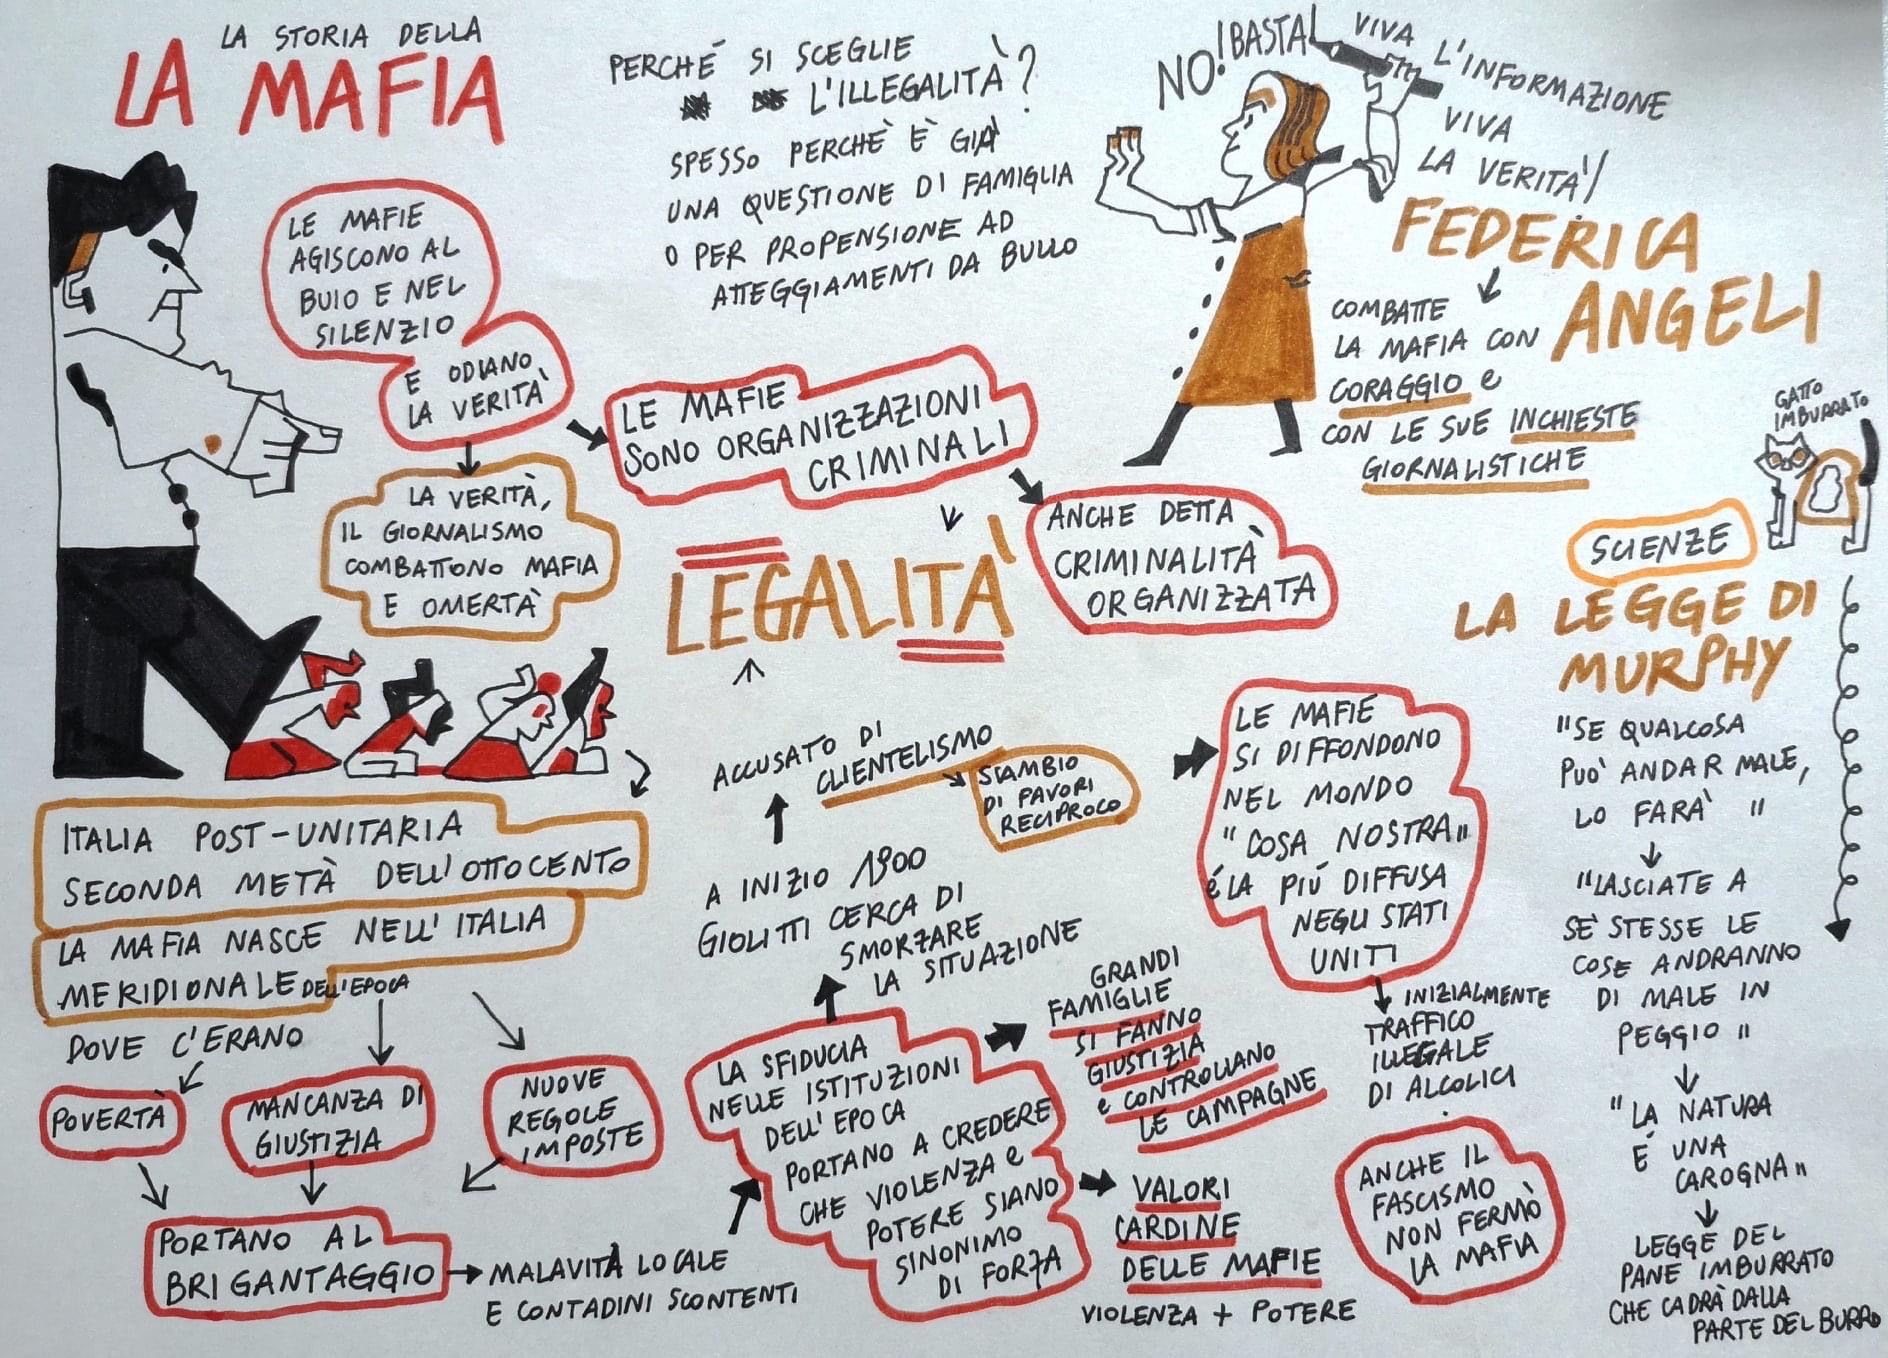 LA STORIA DELLA
LA MAFIA
LE MAFIE
AGISCONO AL
BUIO E NEL
SILENZIO
E ODIANO
LA VERITÀ
LA VERITÀ,
IL GIORNALISMO
COMBATTONO MAFIA
E OMERTÀ
PERCHÉ SI SCEGLIE
L'ILLEGALITÀ?
SPESSO PERCHÈ È GIÀ
UNA QUESTIONE DI FAMIGLIA
O PER PROPENSIONE AD
ATTEGGIAMENTI DA BULLO
LE MAFIE
SONO ORGANIZZAZIONI
CRIMINALI
ANCHE DETTA
CRIMINALITÀ
ORGANIZZATA
LEGALITÀ
NO! BASTA!
VIVA L'INFORMAZIONE
VIVA
LA VERITÀ!
FEDERICA
ANGELI
COMBATTE
LA MAFIA CON
CORAGGIO e
CON LE SUE INCHIESTE
GIORNALISTICHE
GATTO
IMBURRATO
SCIENZE
LA LEGGE DI
MURPHY
"SE QUALCOSA
PUO' ANDAR MALE,
LO FARA' "
"LASCIATE A
SÈ STESSE LE
COSE ANDRANNO
DI MALE IN
PEGGIO"
"LA NATURA
É UNA
CAROGNA"
LEGGE DEL
PANE IMBURRATO
CHE CADRÀ DALLA
PARTE DEL BURRO
ITALIA POST-UNITARIA
SECONDA METÀ DELL'OTTOCENTO
LA MAFIA NASCE NELL'ITALIA
MERIDIONALE DELL'EPOCA
DOVE C'ERANO
POVERTÀ
MANCANZA DI
GIUSTIZIA
NUOVE
REGOLE
IMPOSTE
PORTANO AL
BRIGANTAGGIO
MALAVITÀ LOCALE
E CONTADINI SCONTENTI
LA SFIDUCIA
NELLE ISTITUZIONI
DELL'EPOCA
PORTANO A CREDERE
CHE VIOLENZA e
POTERE SIANO
SINONIMO
DI FORZA
A INIZIO 1900
GIOLITTI CERCA DI
SMORZARE
LA SITUAZIONE
ACCUSATO DI
CLIENTELISMO
SCAMBIO
DI FAVORI
RECIPROCO
GRANDI
FAMIGLIE
SI FANNO
GIUSTIZIA
e CONTROLLANO
LE CAMPAGNE
VALORI
CARDINE
DELLE MAFIE
VIOLENZA + POTERE
LE MAFIE
SI DIFFONDONO
NEL MONDO
"COSA NOSTRA"
é LA PIÚ DIFFUSA
NEGLI STATI
UNITI
INIZIALMENTE
TRAFFICO
ILLEGALE
DI ALCOLICI
ANCHE IL
FASCISMO
NON FERMÒ
LA MAFIA